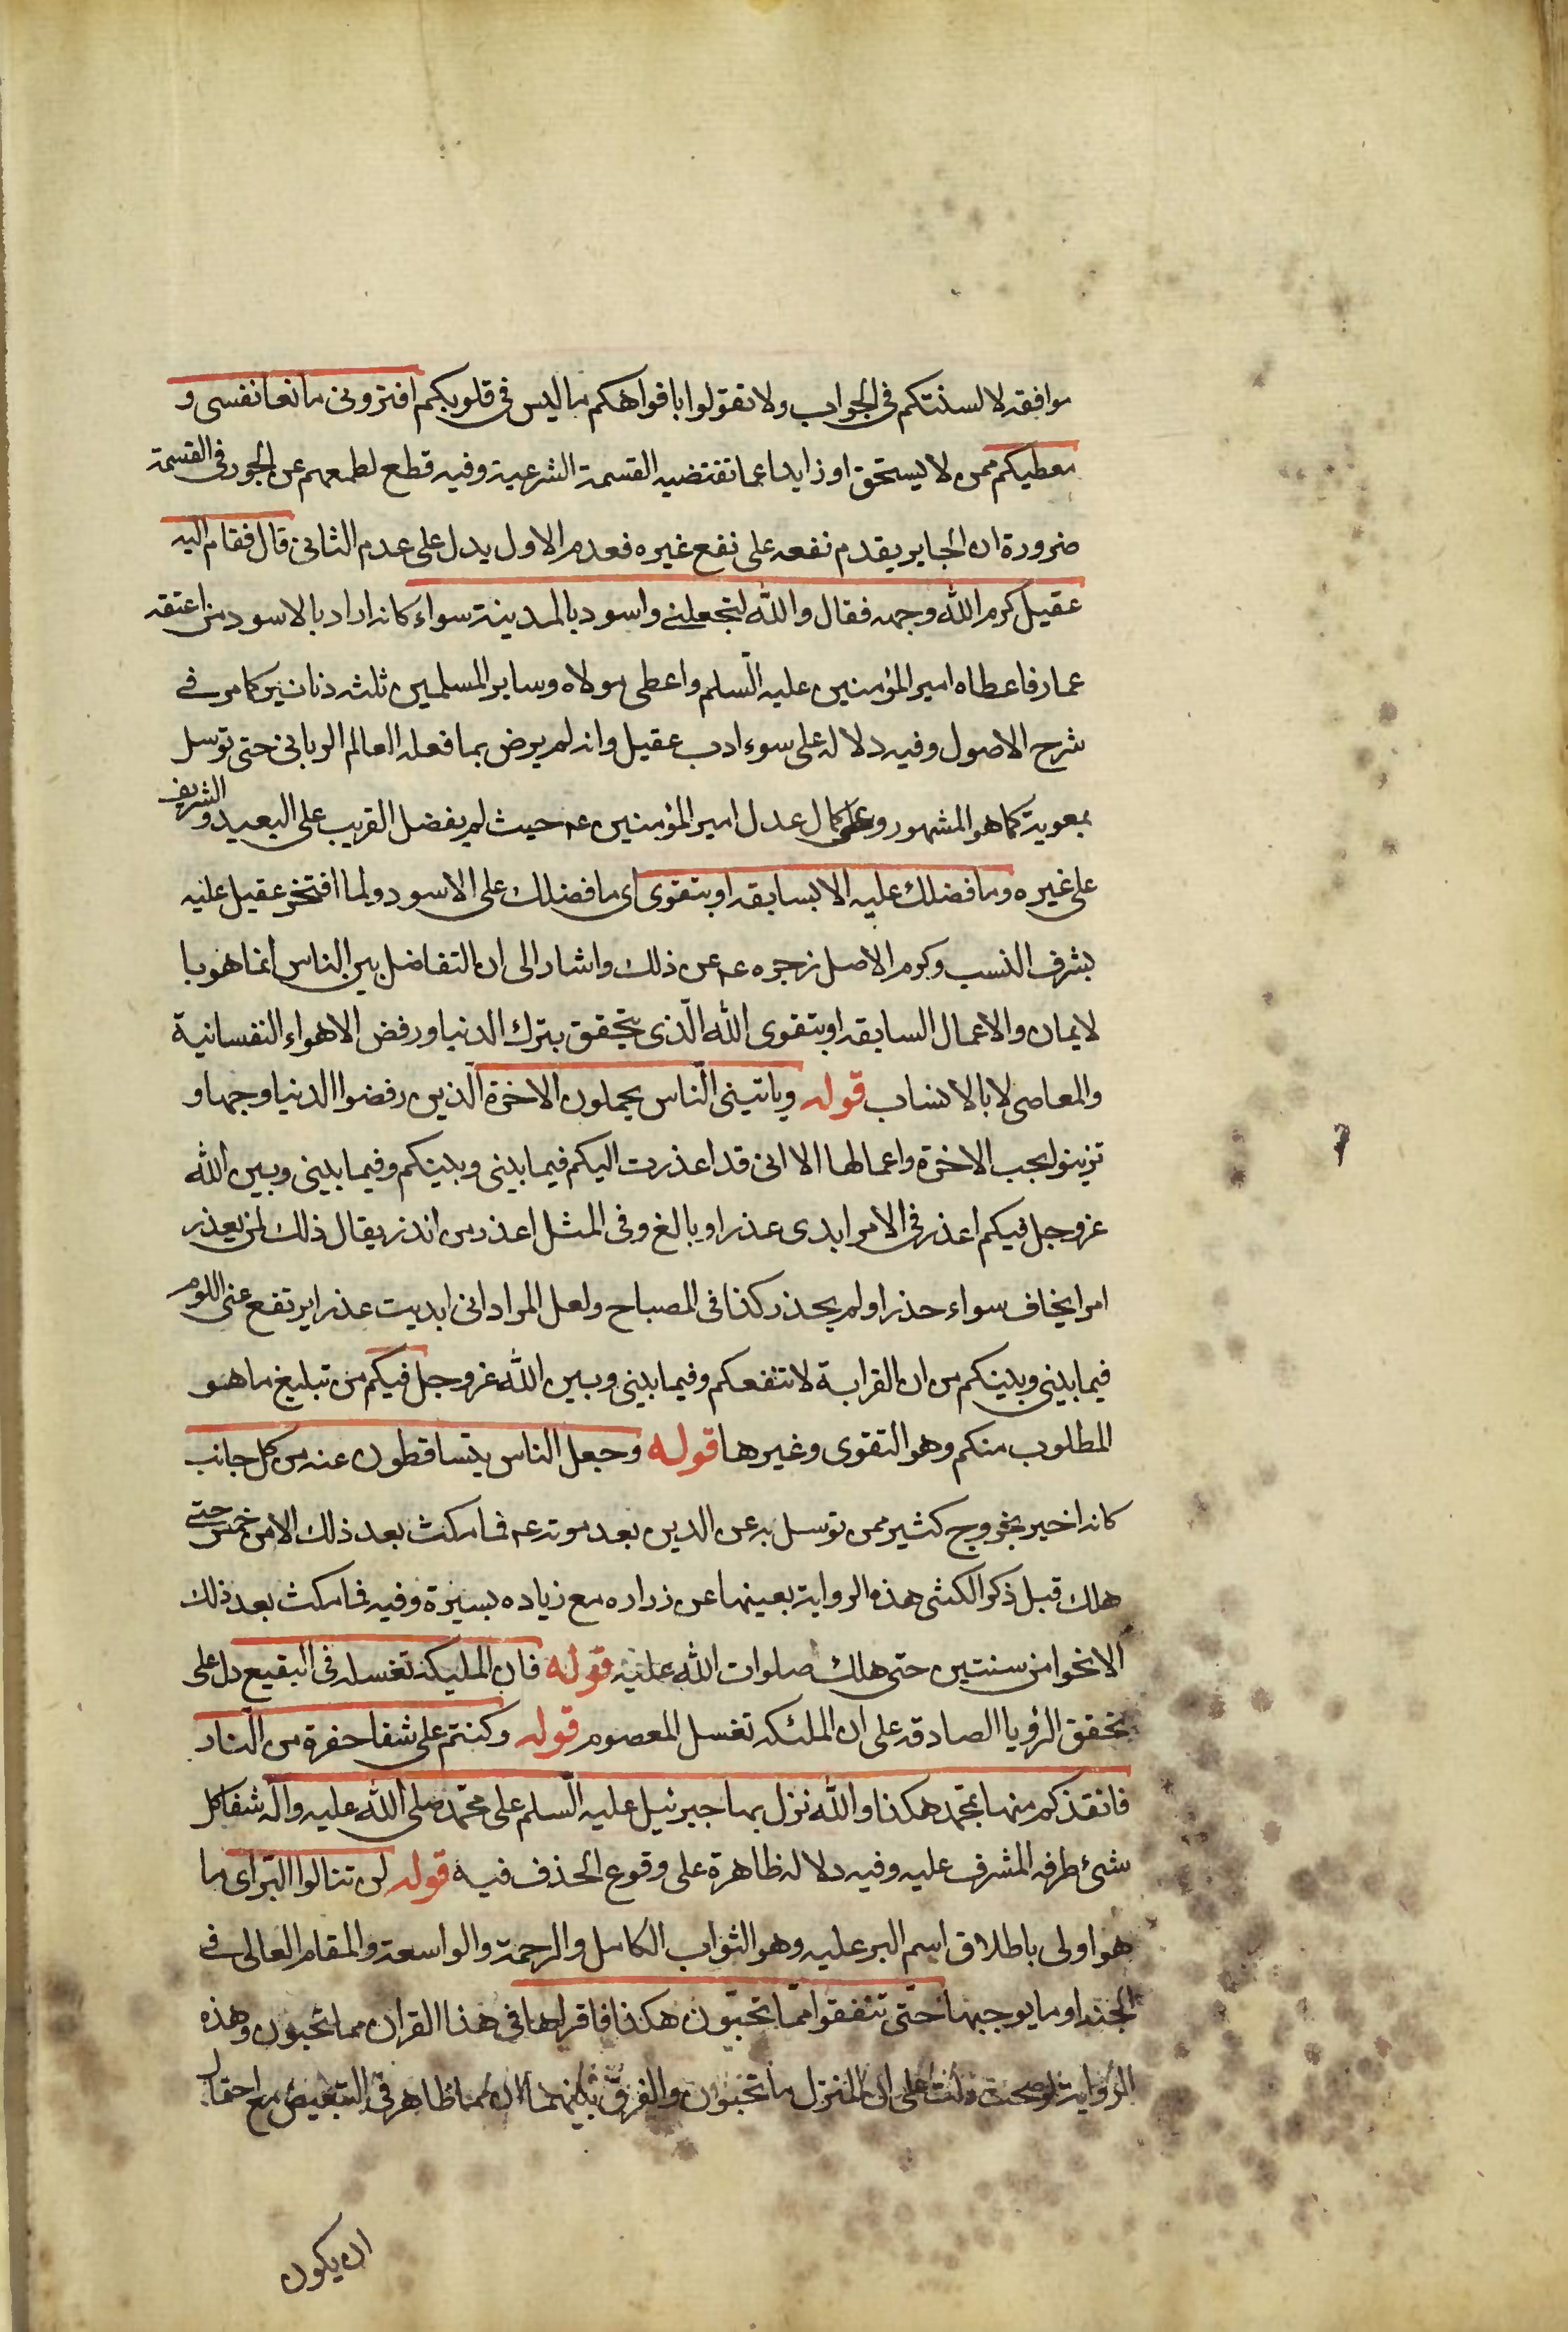 موافقه لالسنتكم فى الجواب ولا تقولوا بافواهكم ما ليس فى قلوبكم افترونى مانعا نفسى و
معطيكم ممن لا يستحق او زايدا عما تقتضيه القسمة الشرعية وفيه قطع لطمعهم عن الجور فى القسمة
ضرورة ان الجاير يقدم نفعه على نفع غيره فعدم الاول يدل على عدم الثانى قال فقام اليه
عقيل كرم الله وجهه فقال والله لتجعلنى واسود بالمدينة سواء كانه اراد بالاسود من اعتقه
عمار فاعطاه امير المؤمنين عليه السلم واعطى مولاه وساير المسلمين ثلثه دنانير كما مر فى
شرح الاصول وفيه دلاله على سوء ادب عقيل وانه لم يرض بما فعله العالم الربانى حتى توسل
بمعوية كما هو المشهور وعلى كمال عدل امير المؤمنين عم حيث لم يفضل القريب على البعيد والشريف
على غيره وما فضلك عليه الا بسابقه او بتقوى اى ما فضلك على الاسود ولما افتخر عقيل عليه
بشرف النسب وكرم الاصل زجره عم عن ذلك واشار الى ان التفاضل بين الناس انما هو با
لايمان والاعمال السابقه او بتقوى الله الّذى يتحقق بترك الدنيا ورفض الاهواء النفسانية
والمعاصى لا بالانساب قوله وياتينى الناس يحملون الاخرة الذين رفضوا الدنيا وجهها و
تزينوا بحب الاخرة واعمالها الا انى قد اعذرت اليكم فيما بينى وبينكم وفيما بينى وبين الله
عز وجل فيكم اعذر فى الامر ابدى عذرا وبالغ وفى المثل اعذر من انذر يقال ذلك لمن يعذر
امرا يخاف سواء حذر او لم يحذر كذا فى المصباح ولعل المراد انى ابديت عذرا يرتفع عنى اللوم
فيما بينى وبينكم من ان القرابة لا تنفعكم وفيما بينى وبين الله عز وجل فيكم من تبليغ ما هو
المطلوب منكم وهو التقوى وغيرها قوله وجعل الناس يتساقطون عنه من كل جانب
كانه اخبر بخروج كثير ممن توسل به عن الدين بعد موته عم فما مكث بعد ذلك الامر حتى
هلك قبل ذكر الكشى هذه الرواية بعينها عن زراره مع زياده يسيرة وفيه فما مكث بعد ذلك
الا نحوا من سنتين حتى هلك صلوات الله عليه قوله فان المليكه تغسله فى البقيع دل على
تحقق الرؤيا الصادقه على ان الملئكه تغسل المعصوم قوله وكنتم على شفا حفرة من النار
فانقذكم منها بمحمد هكذا والله نزل بها جبرئيل عليه السلم على محمّد صلى الله عليه وآله شفا كل
شئ طرفه المشرف عليه وفيه دلاله ظاهرة على وقوع الحذف فيه قوله لن تنالوا البر اى ما
هو اولى باطلاق اسم البر عليه وهو الثواب الكامل والرحمة والواسعة والمقام العالى فى
الجنه او ما يوجبها حتّى تنفقوا ممّا تحبّون هكذا فاقراها فى هذا القران مما تحبون وهذه
الرواية لو صحت دلت على ان المنزل ما تحبون والفرق بينهما ان مما ظاهر فى التبعيض مع احتمال
ان يكون